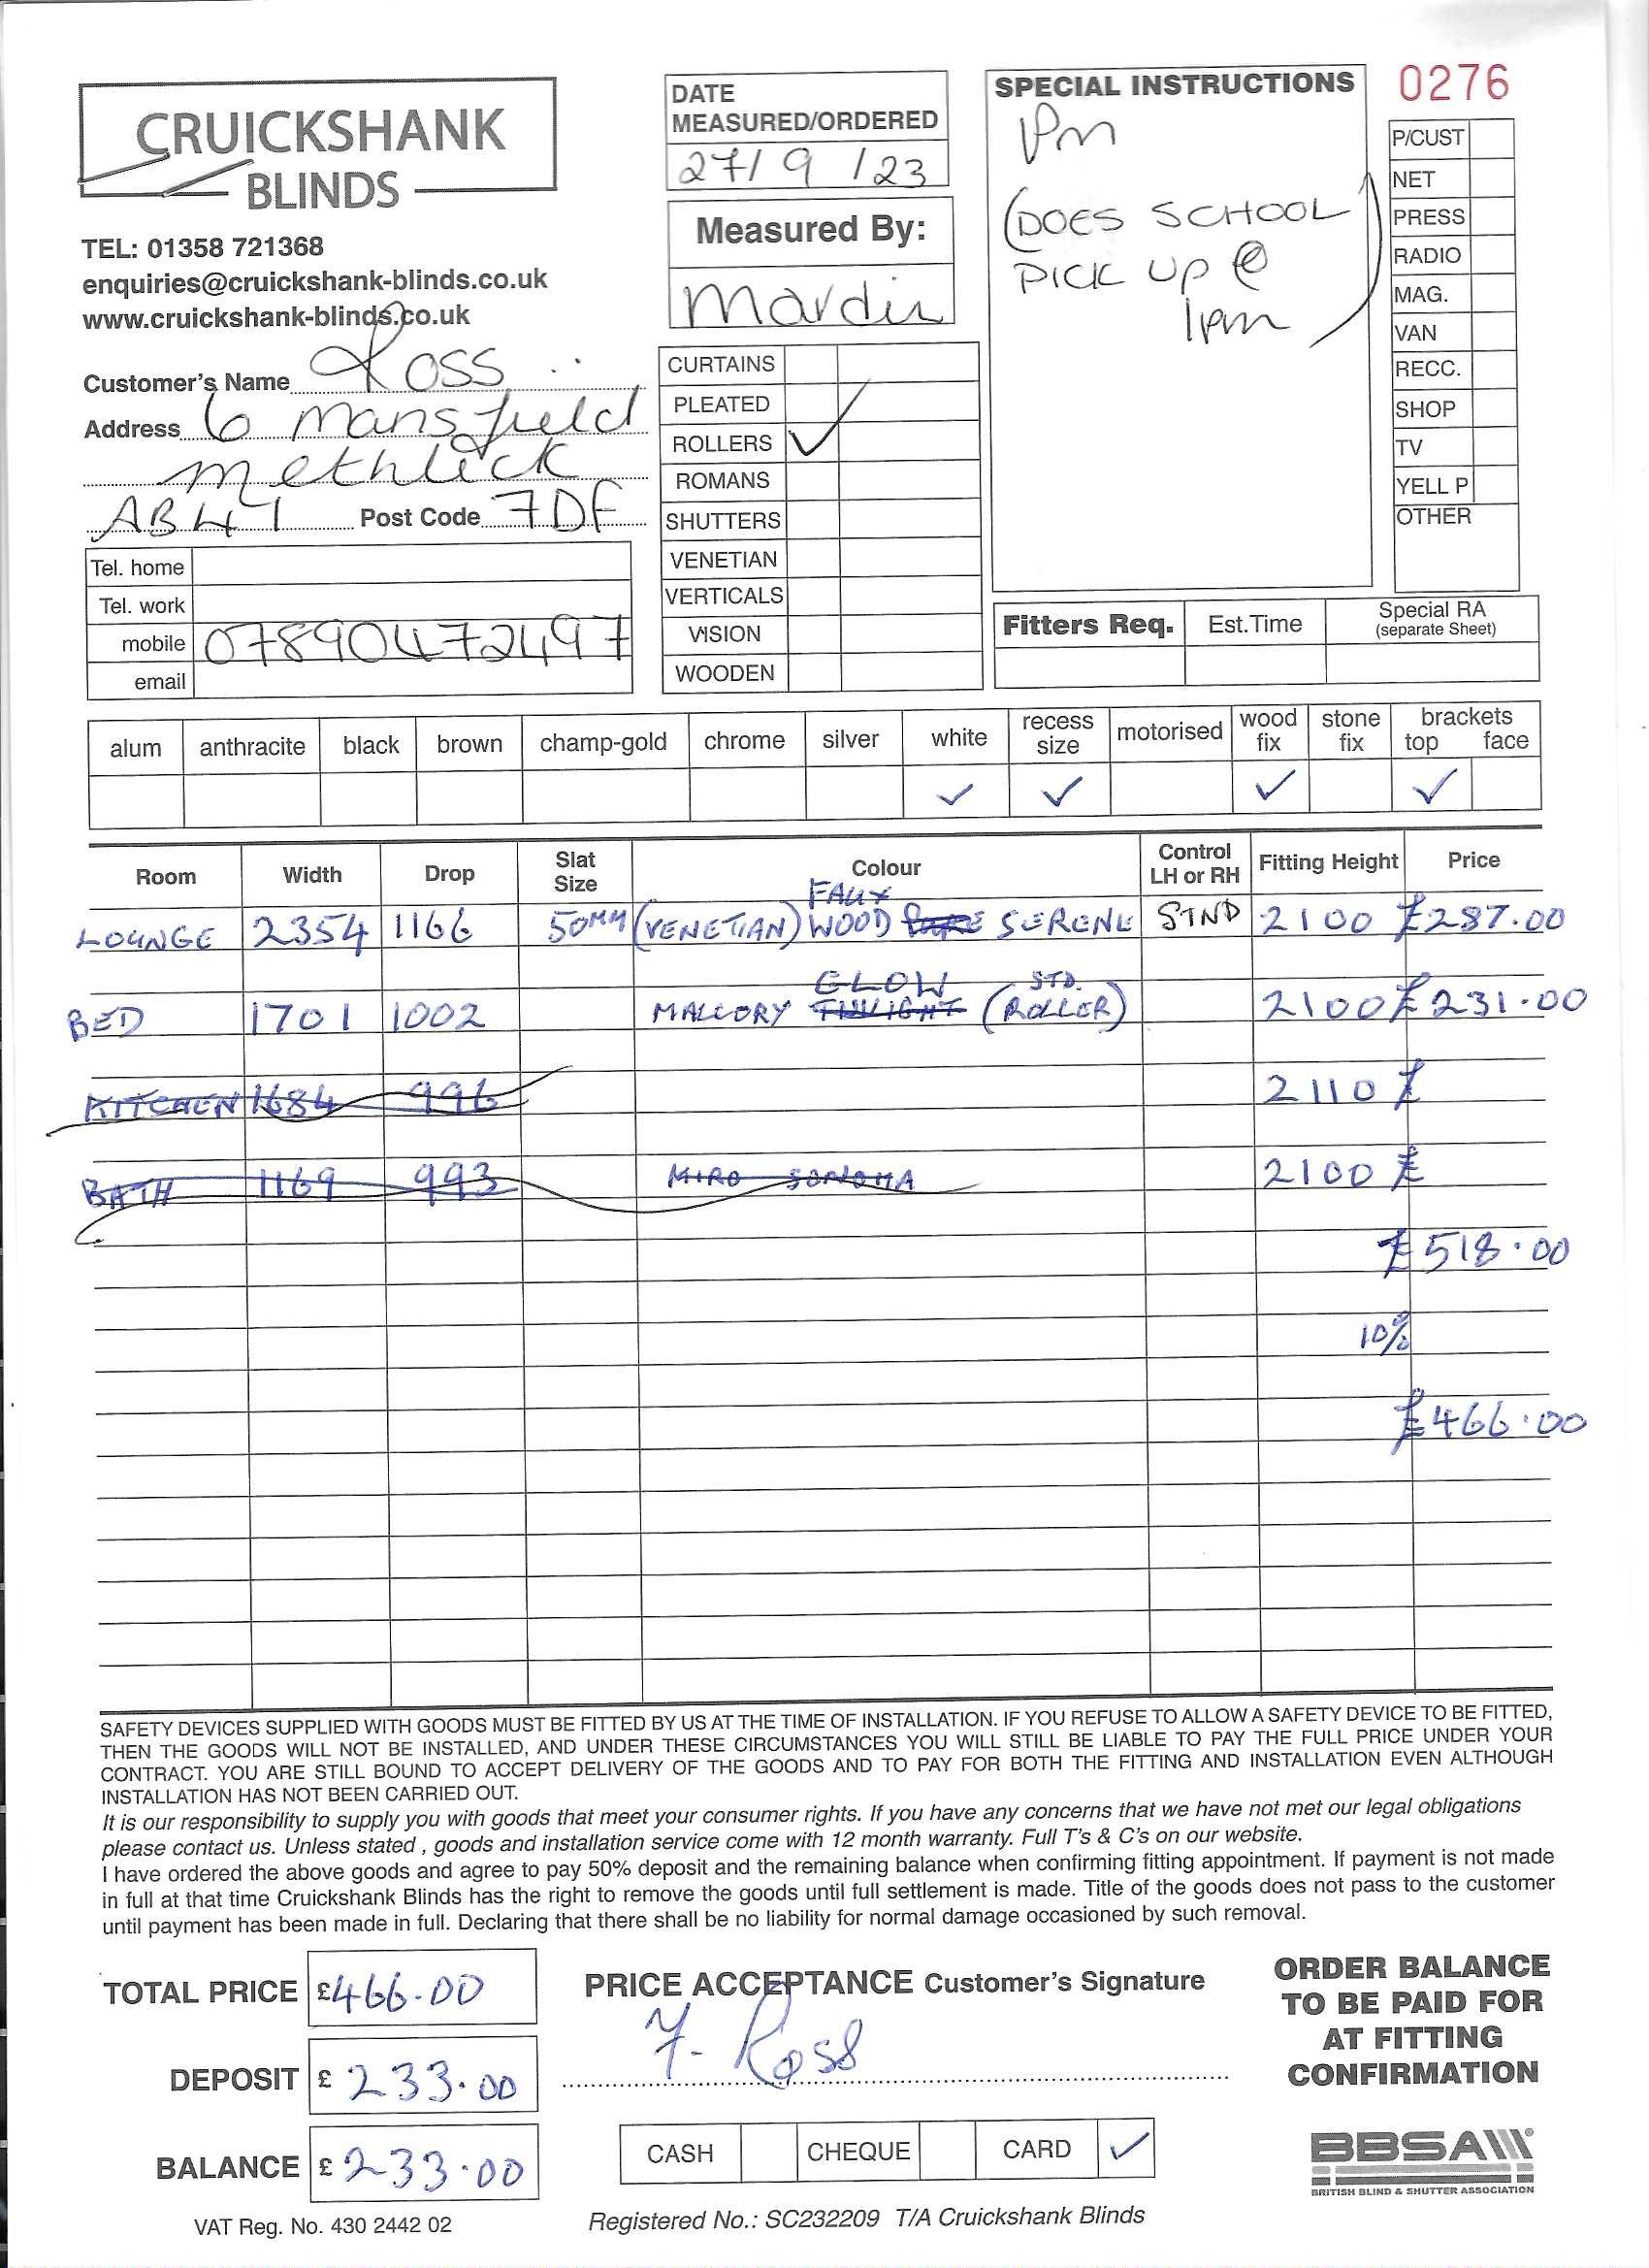 CRUICKSHANK
BLINDS
TEL: 01358 721368
enquiries@cruickshank-blinds.co.uk
www.cruickshank-blinds.co.uk
Customer's Name Ross
Address 6 Mansfield
Methlick
AB41 Post Code 7DF
Tel. home
Tel. work
mobile 07890472497
email
DATE
MEASURED/ORDERED
27/9/23
Measured By:
CURTAINS
PLEATED
ROLLERS ✓
ROMANS
SHUTTERS
VENETIAN
VERTICALS
VISION
WOODEN
SPECIAL INSTRUCTIONS
PM
(DOES SCHOOL
PICK UP @
1pm)
0276
P/CUST
NET
PRESS
RADIO
MAG.
VAN
RECC.
SHOP
TV
YELL P
OTHER
Fitters Req. Est.Time Special RA
(separate Sheet)
alum anthracite black brown champ-gold chrome silver white recess size motorised wood fix stone fix brackets top face
✓ ✓ ✓ ✓
Room Width Drop Slat Size Colour Control LH or RH Fitting Height Price
LOUNGE 2354 1166 50MM (VENETIAN) FAUX WOOD SERENE STND 2100 £287.00
BED 1701 1002 MALLORY GLOW TWILIGHT STD. (ROLLER) 2100 £231.00
KITCHEN 1684 996 2110 £
BATH 1169 993 MIRO SONOMA 2100 £
£518.00
10%
£466.00
SAFETY DEVICES SUPPLIED WITH GOODS MUST BE FITTED BY US AT THE TIME OF INSTALLATION. IF YOU REFUSE TO ALLOW A SAFETY DEVICE TO BE FITTED,
THEN THE GOODS WILL NOT BE INSTALLED, AND UNDER THESE CIRCUMSTANCES YOU WILL STILL BE LIABLE TO PAY THE FULL PRICE UNDER YOUR
CONTRACT. YOU ARE STILL BOUND TO ACCEPT DELIVERY OF THE GOODS AND TO PAY FOR BOTH THE FITTING AND INSTALLATION EVEN ALTHOUGH
INSTALLATION HAS NOT BEEN CARRIED OUT.
It is our responsibility to supply you with goods that meet your consumer rights. If you have any concerns that we have not met our legal obligations
please contact us. Unless stated , goods and installation service come with 12 month warranty. Full T's & C's on our website.
I have ordered the above goods and agree to pay 50% deposit and the remaining balance when confirming fitting appointment. If payment is not made
in full at that time Cruickshank Blinds has the right to remove the goods until full settlement is made. Title of the goods does not pass to the customer
until payment has been made in full. Declaring that there shall be no liability for normal damage occasioned by such removal.
TOTAL PRICE £466.00
DEPOSIT £ 233.00
BALANCE £ 233.00
VAT Reg. No. 430 2442 02
PRICE ACCEPTANCE Customer's Signature
F. Ross
CASH CHEQUE CARD ✓
Registered No.: SC232209 T/A Cruickshank Blinds
ORDER BALANCE
TO BE PAID FOR
AT FITTING
CONFIRMATION
BBSA
BRITISH BLIND & SHUTTER ASSOCIATION